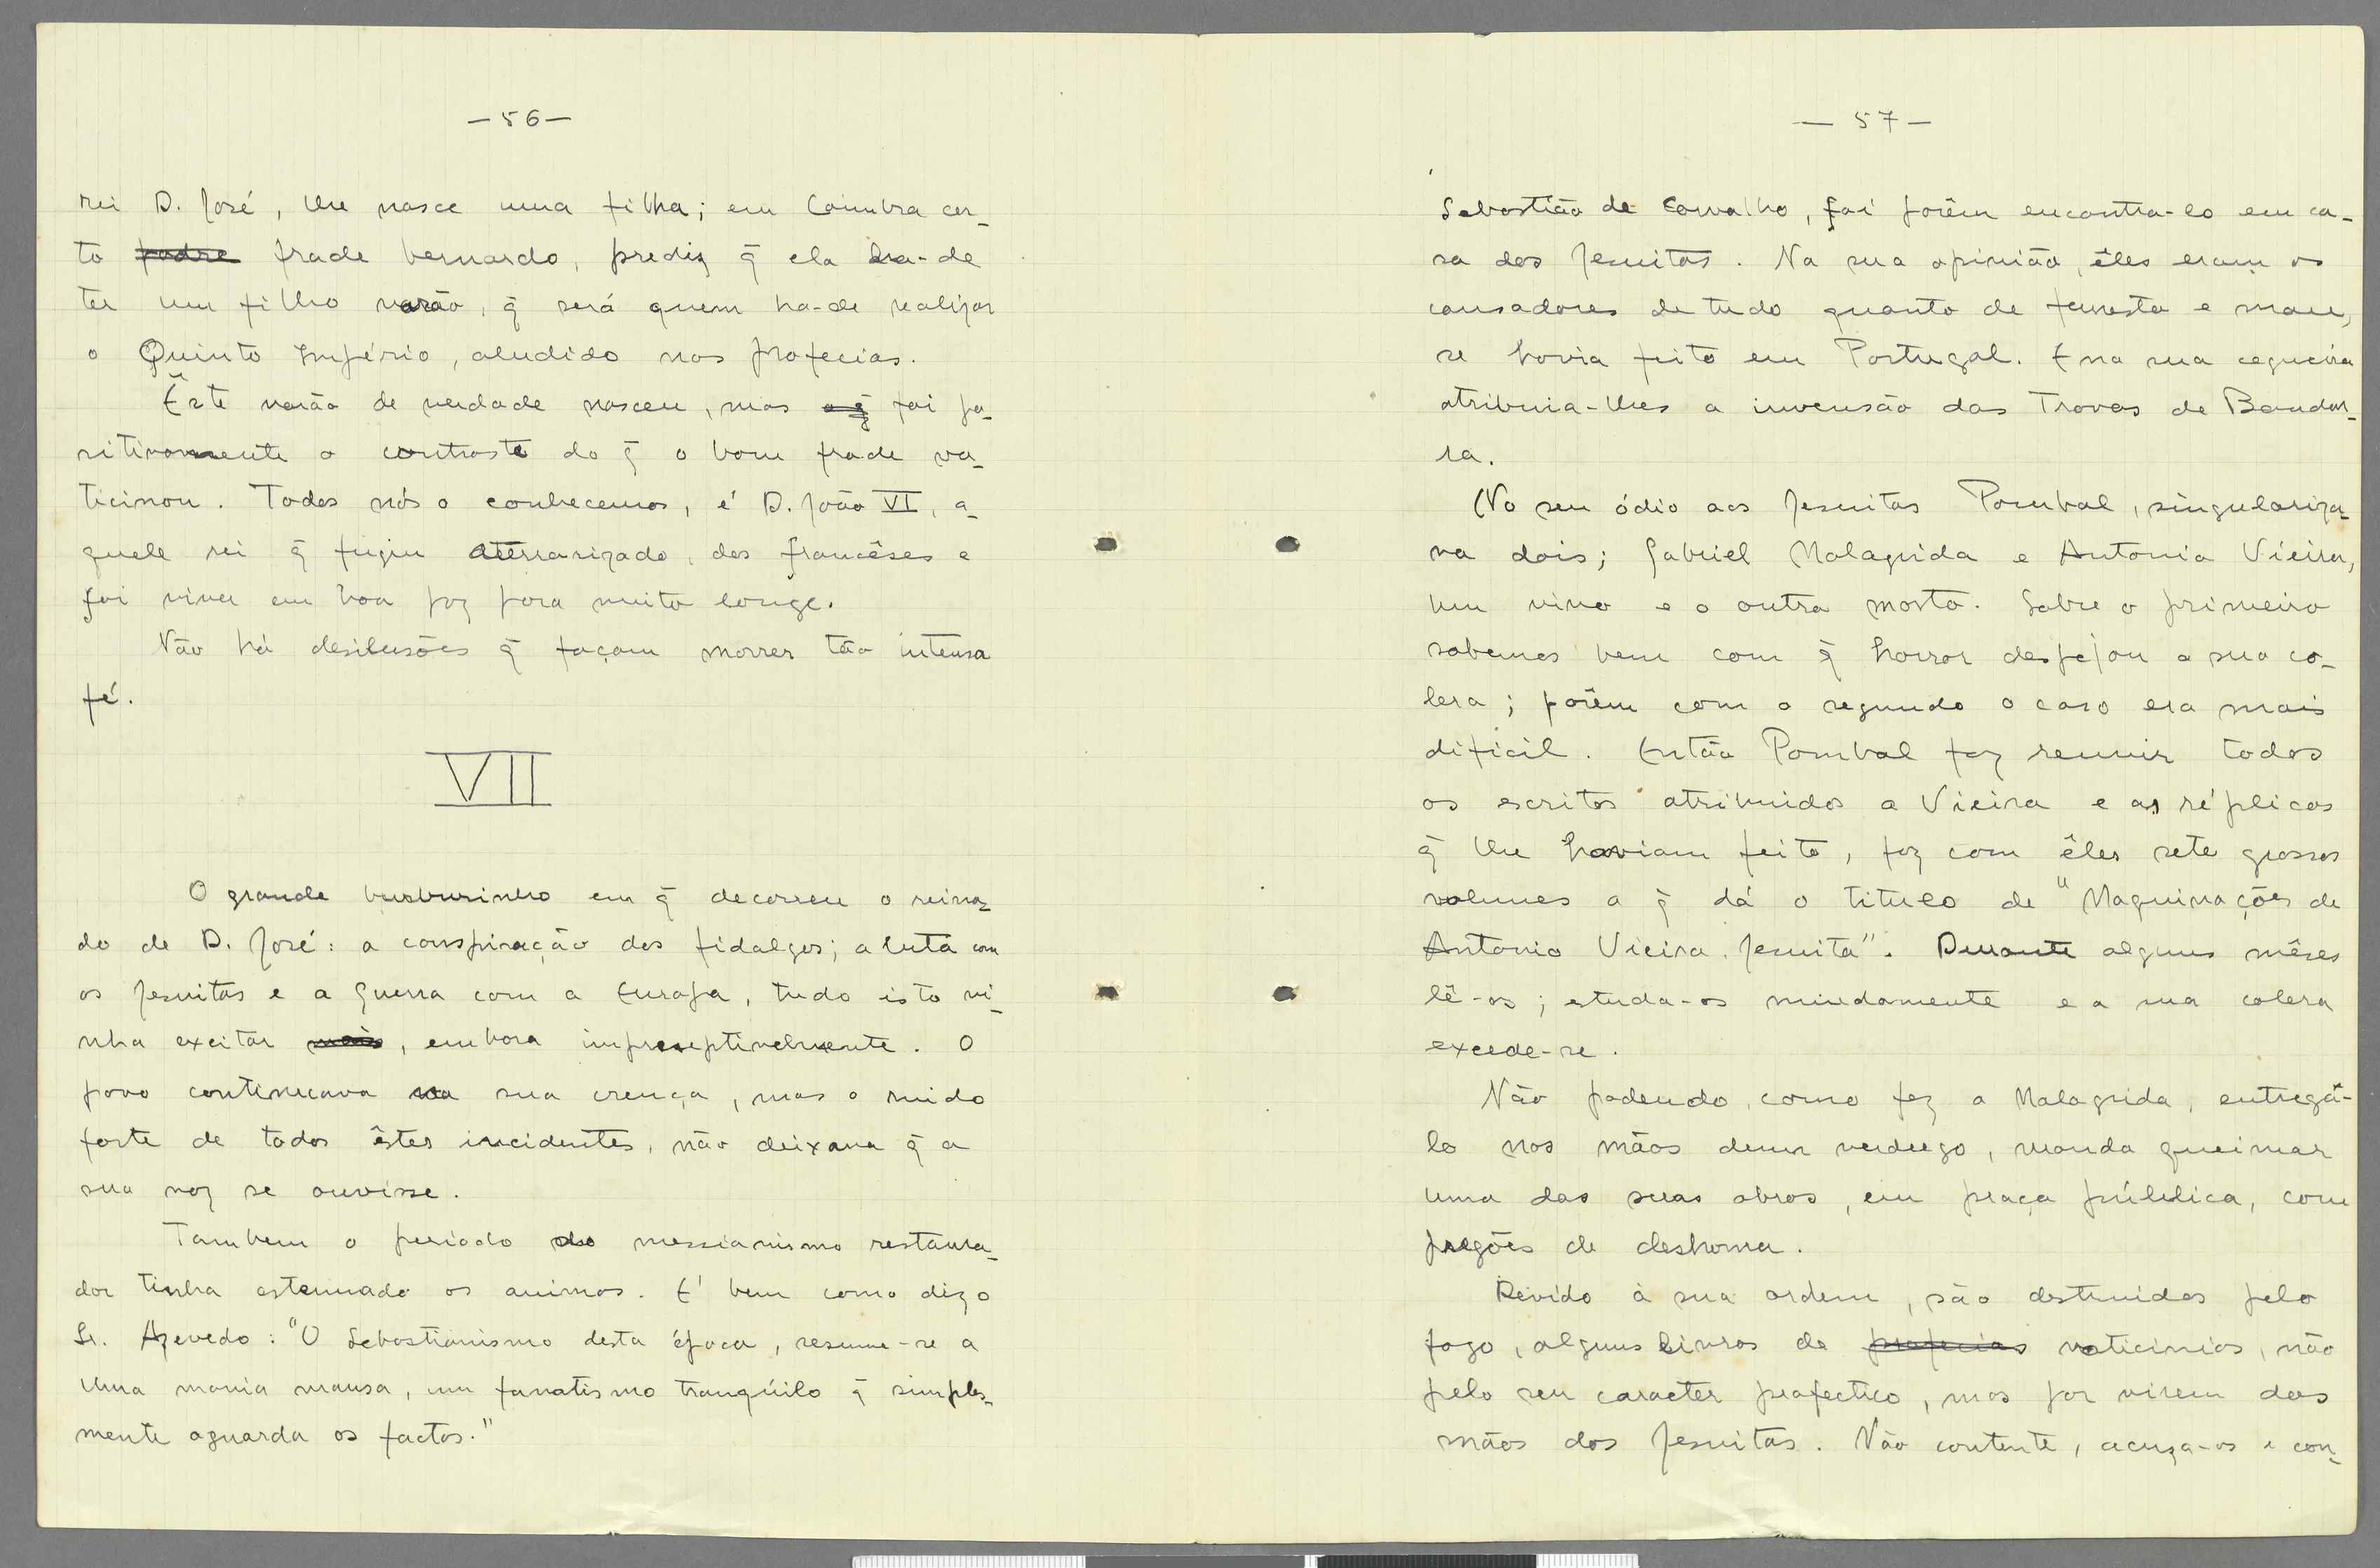 — 56 —
rei D. José, lhe nasce uma filha; em Coimbra cer-
to padre frade bernardo, prediz q̃ ela ha-de
ter um filho varão, q̃ será quem ha-de realizar
o Quinto Império, aludido nas profecias.
Êste varão de verdade nasceu, mas o q̃ foi po-
sitivamente o contraste do q̃ o bom frade va-
ticinou. Todos nós o conhecemos, é D. João VI, a-
quele rei q̃ fugiu aterrarizado, dos francêses e
foi viver em boa paz para muito longe.
Não há desilusões q̃ façam morrer tão intensa
fé.
VII
O grande burburinho em q̃ decorreu o reina-
do de D. José: a conspiração dos fidalgos; a luta com
os Jesuitas e a guerra com a Europa, tudo isto vi-
nha excitar mais, embora impreseptivelmente. O
povo continuava na sua crença, mas o ruido
forte de todos êstes incidentes, não deixava q̃ a
sua voz se ouvisse.
Tambem o periodo do messianismo restaura-
dor tinha estenuado os animos. E' bem como diz o
Sr. Azevedo: "O Sebastianismo desta época, resume-se a
uma mania mansa, um fanatismo tranqúilo q̃ simples-
mente aguarda os factos."
— 57 —
Sebastião de Carvalho, foi porêm encontra-lo em ca-
sa dos Jesuitas. Na sua opinião, êles eram os
causadores de tudo quanto de funesto e mau,
se havia feito em Portugal. E na sua cegueira
atribuia-lhes a invensão das Trovas de Bandar-
ra.
No seu ódio aos Jesuitas Pombal, singulariza-
va dois; Gabriel Malagrida e Antonio Vieira,
um vivo e o outro morto. Sobre o primeiro
sabemos bem com q̃ horror despejou a sua co-
lera; porêm com o segundo o caso era mais
dificil. Então Pombal faz reunir todos
os escritos atribuidos a Vieira e as réplicas
q̃ lhe haviam feito, faz com êles sete grossos
volumes a q̃ dá o titulo de "Maquinações de
Antonio Vieira, Jesuita". Durante alguns mêses
lê-os; estuda-os miudamente e a sua colera
excede-se.
Não podendo, como fez a Malagrida, entregá-
lo nas mãos dum verdugo, manda queimar
uma das suas obras, em praça pública, com
pregões de deshonra.
Devido à sua ordem, são destruidos pelo
fogo, alguns livros de profecias vaticinios, não
pelo seu caracter profectico, mas por virem das
mãos dos Jesuitas. Não contente, acuza-os e con-